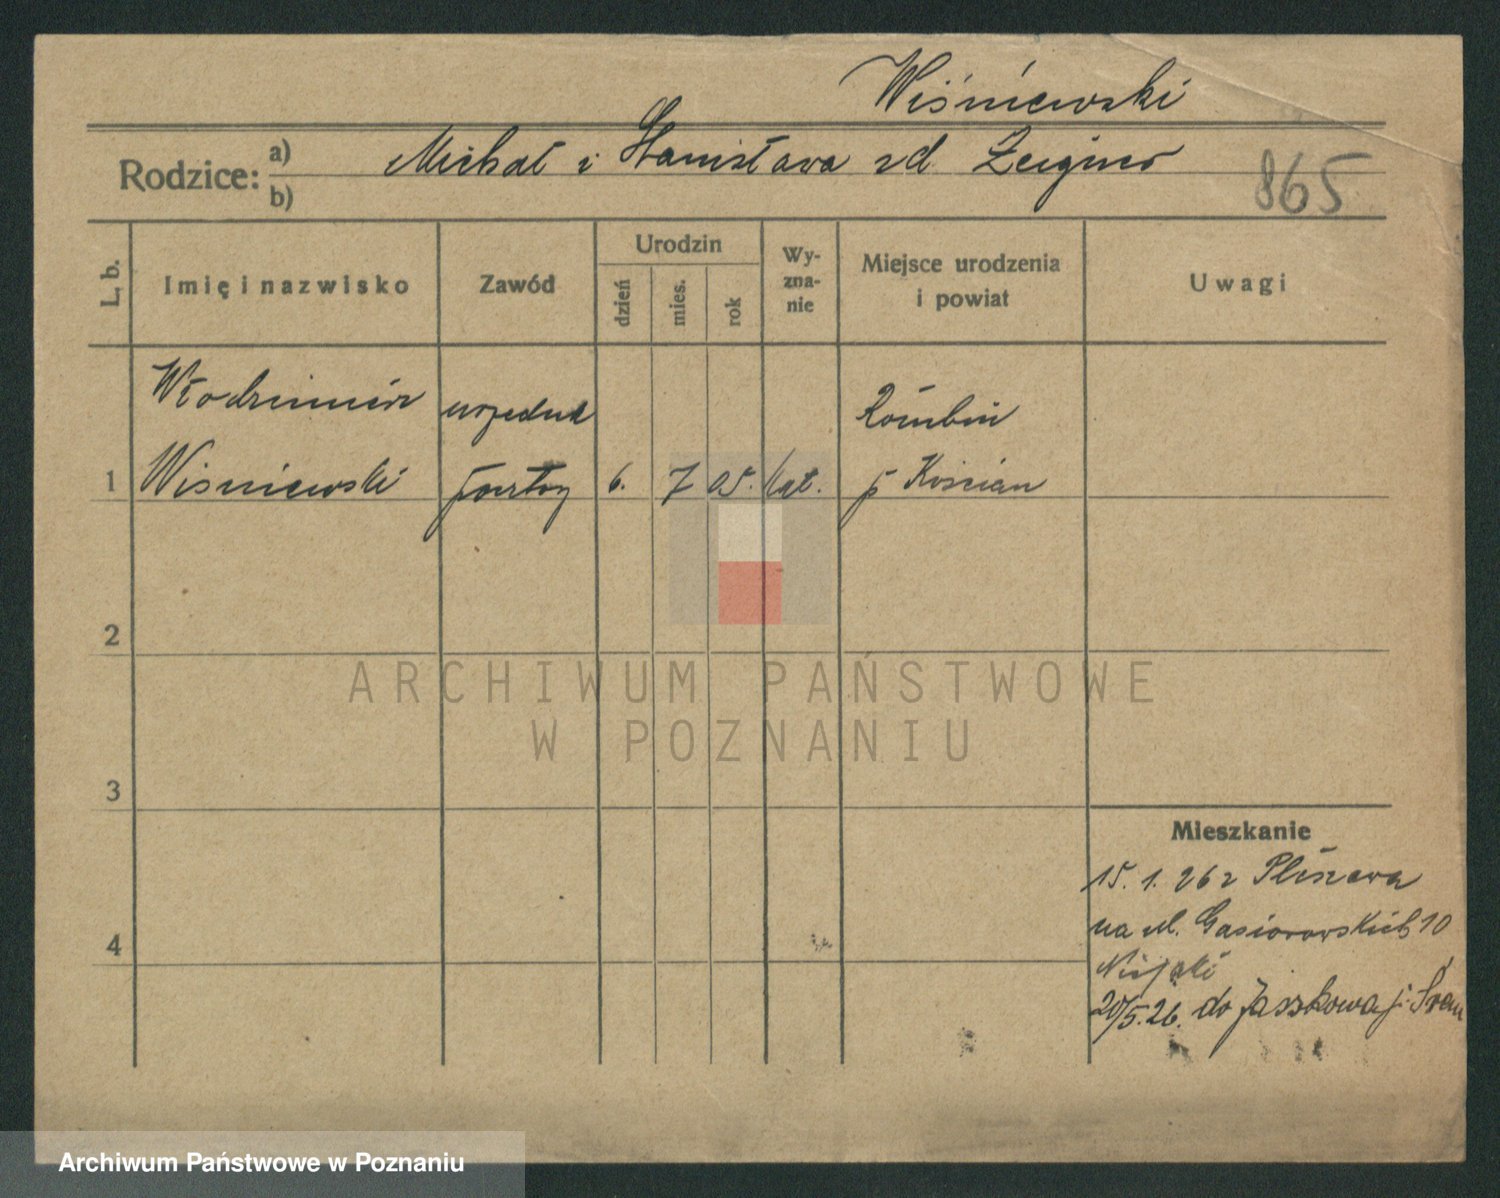 Wiśniewski
Rodzice: a) b) Michał i Stanisława zd.
865
L. b. Imię i nazwisko Zawód Urodzin dzień mies. rok Wy-zna-nie Miejsce urodzenia i powiat Uwagi
Włodzimierz
1 Wiśniewski 6. 7 05. kat. p Kościan
2
3
4
Mieszkanie
15. 1. 26 z Pleszewa
na ul. Gąsiorowskich 10
20/5.26. do Jaszkowa p. Śrem
ARCHIWUM PAŃSTWOWE
W POZNANIU
Archiwum Państwowe w Poznaniu